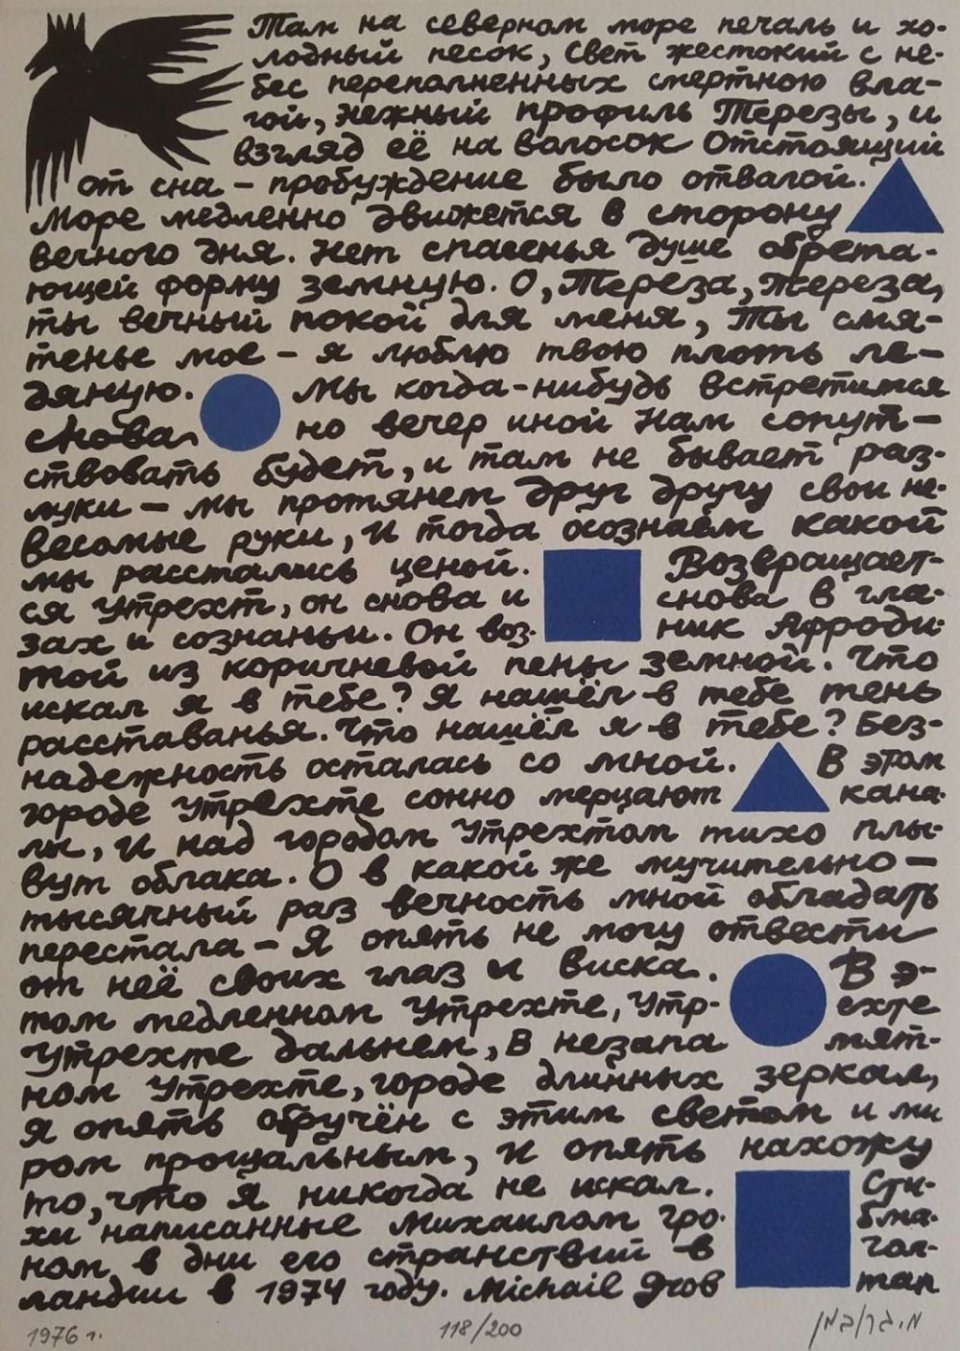 Там на северном море печаль и хо-
лодный песок, свет жестокий с не-
бес переполненных смертною вла-
гой, нежный профиль Терезы, и
взгляд её на волосок отстоящий
от сна – пробуждение было отвагой.
Море медленно движется в сторону
вечного дня. Нет спасенья душе обрета-
ющей форму земную. О, Тереза, Тереза,
ты вечный покой для меня, ты смя-
тенье мое – я люблю твою плоть ле-
дяную. Мы когда-нибудь встретимся
снова но вечер иной нам сопут-
ствовать будет, и там не бывает раз-
луки – мы протянем друг другу свои не-
весомые руки, и тогда осознаём какой
мы расстались ценой. Возвращает-
ся Утрехт, он снова и снова в гла-
зах и сознаньи. Он воз- ник Афроди-
той из коричневой пены земной. Что
искал я в тебе? Я нашёл в тебе тень
расставанья. Что нашёл я в тебе? Без-
надежность осталась со мной. В этом
городе Утрехте сонно мерцают кана-
лы, и над городом Утрехтом тихо плы-
вут облака. О в какой же мучительно –
тысячный раз вечность мной обладать
перестала – Я опять не могу отвести
от неё своих глаз и виска. В э-
том медленном Утрехте, Утр- ехте
Утрехте дальнем, в незапа мят-
ном Утрехте, городе длинных зеркал,
я опять обручён с этим светом и ми
ром прощальным, и опять нахожу
то, что я никогда не искал. Сти-
хи написанные Михаилом Гро- бма-
ном в дни его странствий в гол-
ландии в 1974 году. Michail Grob man
1976 г. 118/200 מ. גרובמן